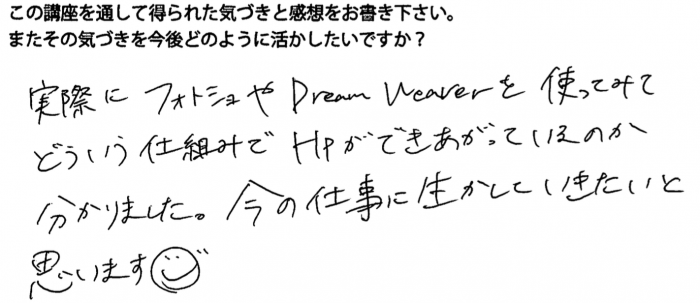 この講座を通して得られた気づきと感想をお書き下さい。
またその気づきを今後どのように活かしたいですか？
実際に フォトショや Dream Weaverを 使ってみて
どういう 仕組みで HPができあがっているのか
分かりました。今の仕事に生かしていきたいと
思います